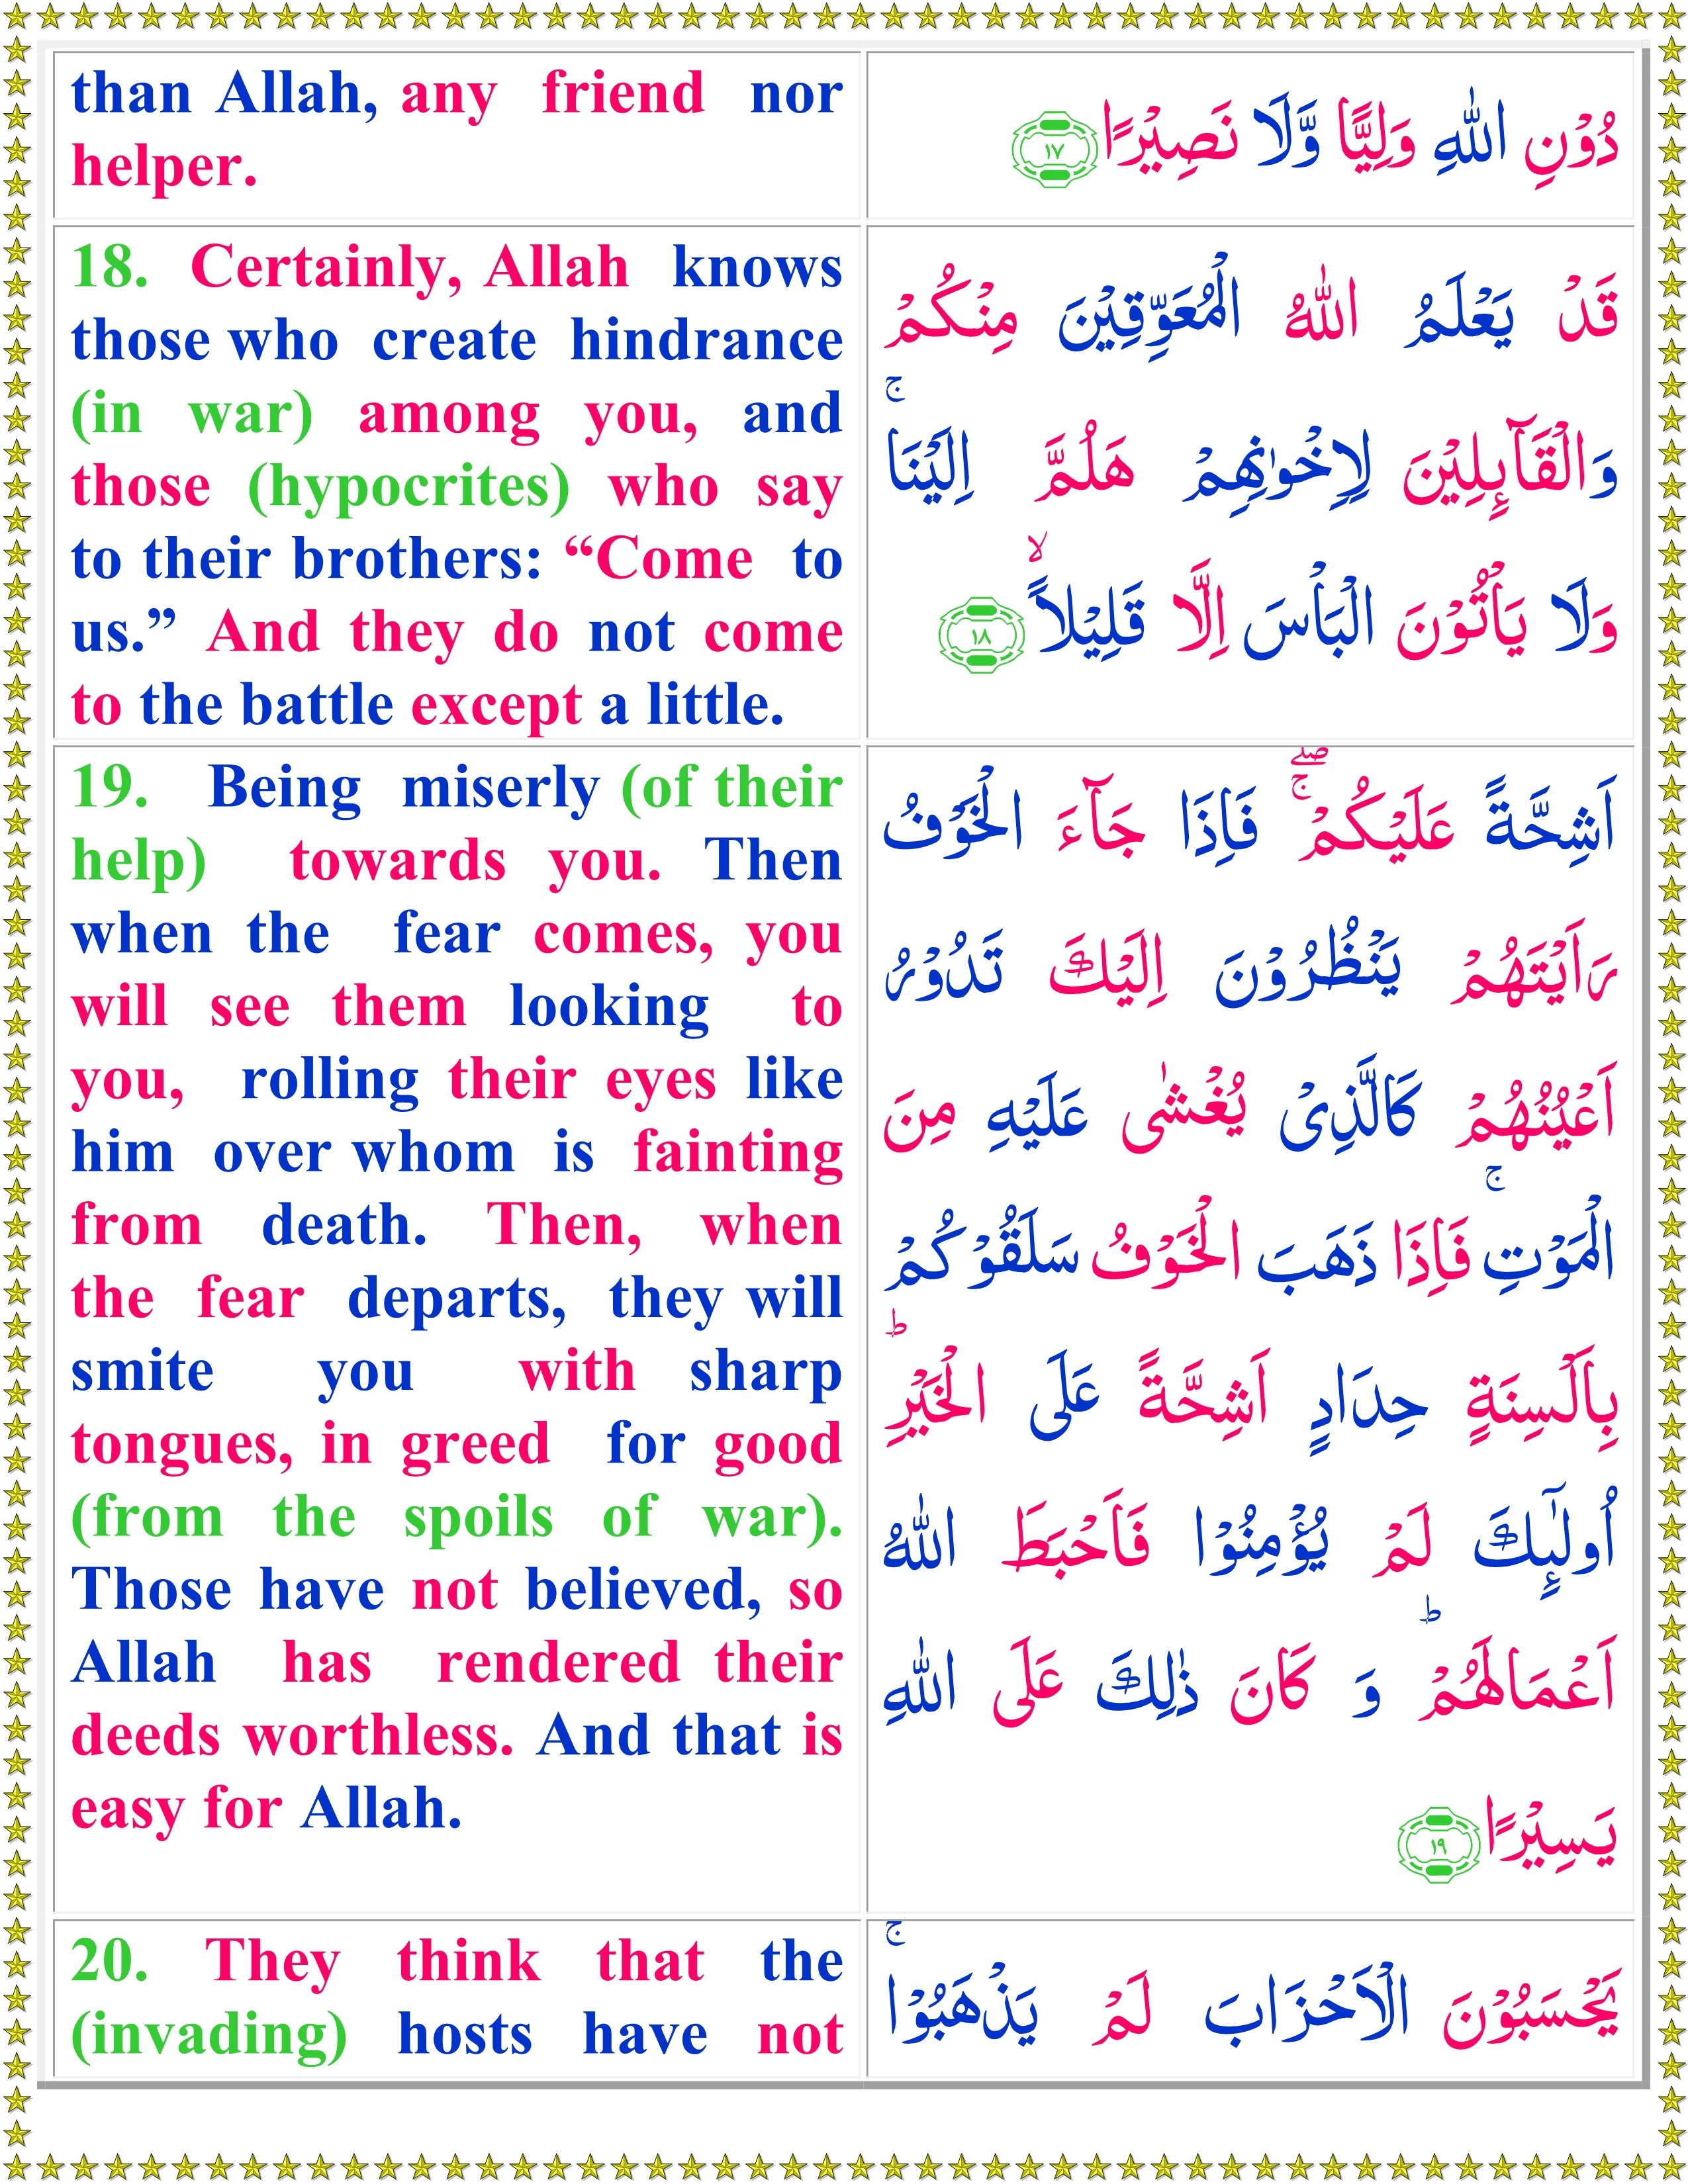 than Allah, any friend nor
helper.
دُوْنِ اللّٰهِ وَلِيًّا وَّلَا نَصِيْرًا ١٧
18. Certainly, Allah knows
those who create hindrance
(in war) among you, and
those (hypocrites) who say
to their brothers: “Come to
us.” And they do not come
to the battle except a little.
قَدْ يَعْلَمُ اللّٰهُ الْمُعَوِّقِيْنَ مِنْكُمْ
وَالْقَآٮِٕلِيْنَ لِاِخْوَانِهِمْ هَلُمَّ اِلَيْنَا ۚ
وَلَا يَاْتُوْنَ الْبَاْسَ اِلَّا قَلِيْلًا ۙ ١٨
19. Being miserly (of their
help) towards you. Then
when the fear comes, you
will see them looking to
you, rolling their eyes like
him over whom is fainting
from death. Then, when
the fear departs, they will
smite you with sharp
tongues, in greed for good
(from the spoils of war).
Those have not believed, so
Allah has rendered their
deeds worthless. And that is
easy for Allah.
اَشِحَّةً عَلَيْكُمْ ۖۚ فَاِذَا جَآءَ الْخَوْفُ
رَاَيْتَهُمْ يَنْظُرُوْنَ اِلَيْكَ تَدُوْرُ
اَعْيُنُهُمْ كَالَّذِىْ يُغْشٰى عَلَيْهِ مِنَ
الْمَوْتِ ۚ فَاِذَا ذَهَبَ الْخَوْفُ سَلَقُوْكُمْ
بِاَلْسِنَةٍ حِدَادٍ اَشِحَّةً عَلَى الْخَيْرِ ؕ
اُولٰٓٮِٕكَ لَمْ يُؤْمِنُوْا فَاَحْبَطَ اللّٰهُ
اَعْمَالَهُمْ ؕ وَ كَانَ ذٰلِكَ عَلَى اللّٰهِ
يَسِيْرًا ١٩
20. They think that the
(invading) hosts have not
يَحْسَبُوْنَ الْاَحْزَابَ لَمْ يَذْهَبُوْا ۚ